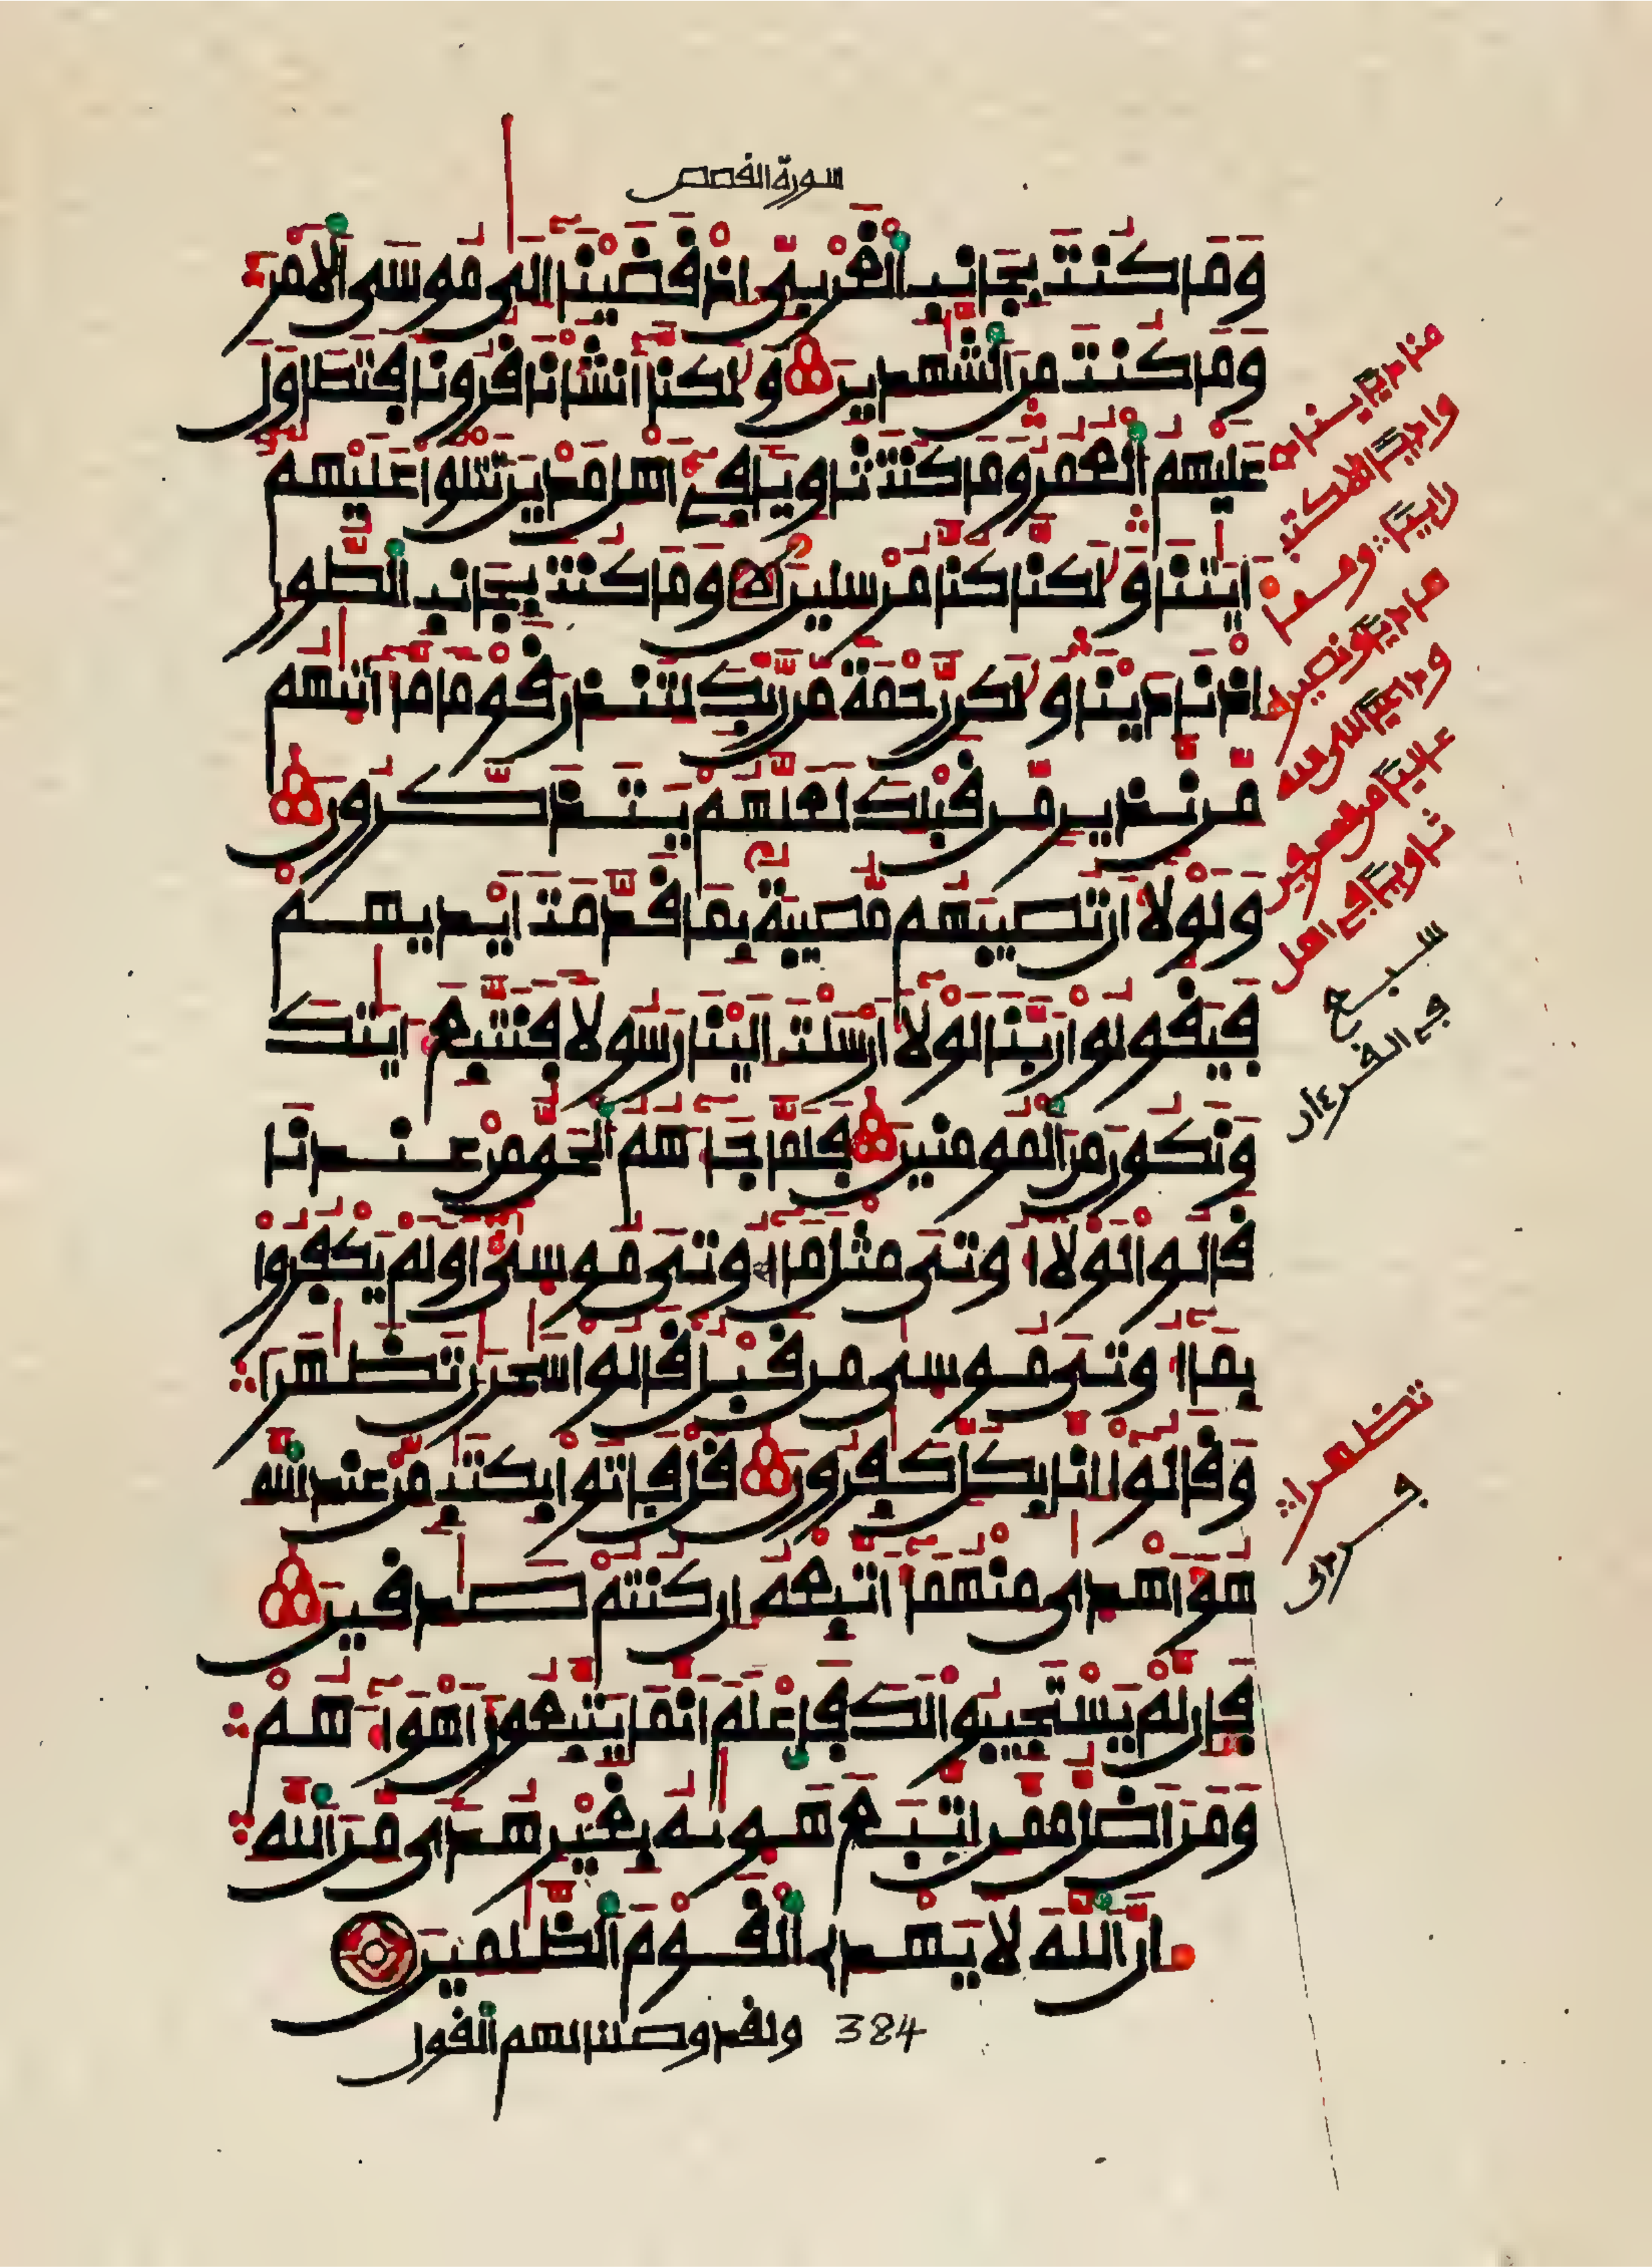 سورة القصص
وَمَا كُنتَ بِجَانِبِ الْغَرْبِيِّ إِذْ قَضَيْنَا إِلَى مُوسَى الْأَمْرَ
وَمَا كُنتَ مِنَ الشَّٰهِدِينَ وَلَٰكِنَّا أَنشَأْنَا قُرُونًا فَتَطَاوَلَ
عَلَيْهِمُ الْعُمُرُ وَمَا كُنتَ ثَاوِيًا فِي أَهْلِ مَدْيَنَ تَتْلُوا عَلَيْهِمْ
ءَايَٰتِنَا وَلَٰكِنَّا كُنَّا مُرْسِلِينَ وَمَا كُنتَ بِجَانِبِ الطُّورِ
إِذْ نَادَيْنَا وَلَٰكِن رَّحْمَةً مِّن رَّبِّكَ لِتُنذِرَ قَوْمًا مَّا أَتَىٰهُم
مِّن نَّذِيرٍ مِّن قَبْلِكَ لَعَلَّهُمْ يَتَذَكَّرُونَ
وَلَوْلَا أَن تُصِيبَهُم مُّصِيبَةٌ بِمَا قَدَّمَتْ أَيْدِيهِمْ
فَيَقُولُوا رَبَّنَا لَوْلَا أَرْسَلْتَ إِلَيْنَا رَسُولًا فَنَتَّبِعَ ءَايَٰتِكَ
وَنَكُونَ مِنَ الْمُومِنِينَ فَلَمَّا جَاءَهُمُ الْحَقُّ مِنْ عِندِنَا
قَالُوا لَوْلَا أُوتِيَ مِثْلَ مَا أُوتِيَ مُوسَىٰ أَوَلَمْ يَكْفُرُوا
بِمَا أُوتِيَ مُوسَىٰ مِن قَبْلُ قَالُوا سَٰحِرَٰنِ تَظَٰهَرَا
وَقَالُوا إِنَّا بِكُلٍّ كَٰفِرُونَ قُلْ فَاتُوا بِكِتَٰبٍ مِّنْ عِندِ اللَّهِ
هُوَ أَهْدَىٰ مِنْهُمَا أَتَّبِعْهُ إِن كُنتُمْ صَٰدِقِينَ
فَإِن لَّمْ يَسْتَجِيبُوا لَكَ فَاعْلَمْ أَنَّمَا يَتَّبِعُونَ أَهْوَاءَهُمْ
وَمَنْ أَضَلُّ مِمَّنِ اتَّبَعَ هَوَىٰهُ بِغَيْرِ هُدًى مِّنَ اللَّهِ
إِنَّ اللَّهَ لَا يَهْدِي الْقَوْمَ الظَّٰلِمِينَ
384 ولقد وصلنا لهم القول
سبع
في القرءان
تظهرا